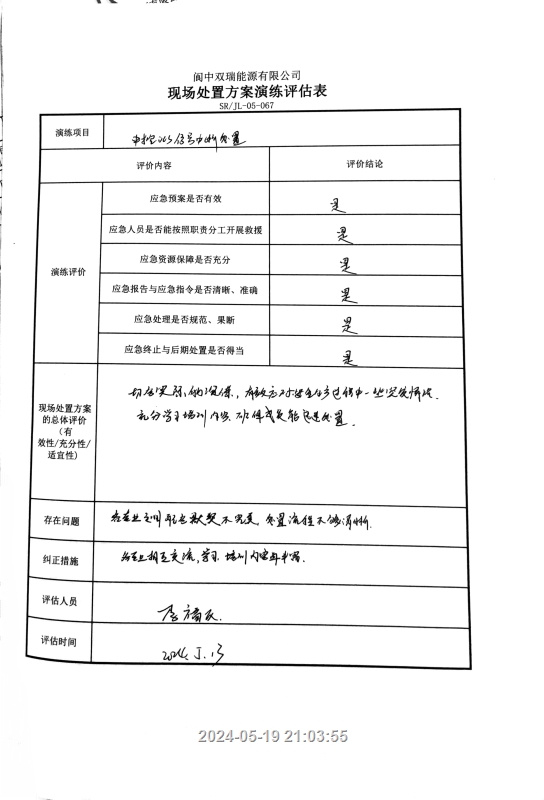 阆中双瑞能源有限公司
现场处置方案演练评估表
SR/JL-05-067
演练项目 中控DCS信号中断处置
评价内容 评价结论
演练评价
应急预案是否有效 是
应急人员是否能按照职责分工开展救援 是
应急资源保障是否充分 是
应急报告与应急指令是否清晰、准确 是
应急处理是否规范、果断 是
应急终止与后期处置是否得当 是
现场处置方案的总体评价（有效性/充分性/适宜性）
切合实际的 一些突发情况
充分学习培训内容
存在问题 之间配合默契不完美，处置流程不够清晰.
纠正措施 相互交流，学习培训内容
评估人员
评估时间 2024.5.13
2024-05-19 21:03:55